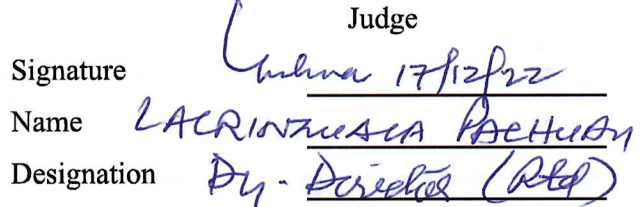 Judge
Signature 17/12/22
Name LALRINZUALA PACHUAU
Designation Dy. Director (Rtd)